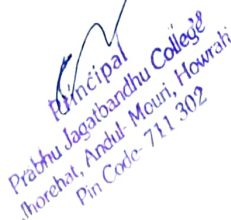 Principal
Prabhu Jagatbandhu College
Jhorehat, Andul- Mouri, Howrah
Pin Code- 711 302